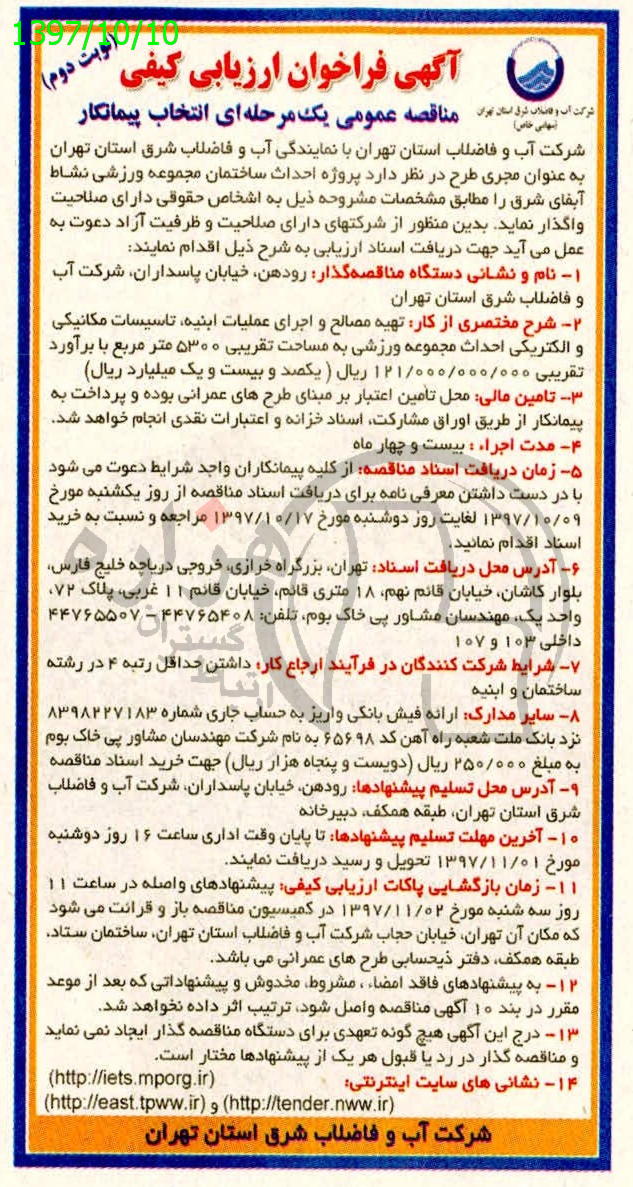 1397/10/10
(نوبت دوم)
آگهی فراخوان ارزیابی کیفی
مناقصه عمومی یک مرحله‌ای انتخاب پیمانکار
شرکت آب و فاضلاب شرق استان تهران
(سهامی خاص)
شرکت آب و فاضلاب استان تهران با نمایندگی آب و فاضلاب شرق استان تهران
به عنوان مجری طرح در نظر دارد پروژه احداث ساختمان مجموعه ورزشی نشاط
آبفای شرق را مطابق مشخصات مشروحه ذیل به اشخاص حقوقی دارای صلاحیت
واگذار نماید. بدین منظور از شرکتهای دارای صلاحیت و ظرفیت آزاد دعوت به
عمل می آید جهت دریافت اسناد ارزیابی به شرح ذیل اقدام نمایند:
۱- نام و نشانی دستگاه مناقصه‌گذار: رودهن، خیابان پاسداران، شرکت آب
و فاضلاب شرق استان تهران
۲- شرح مختصری از کار: تهیه مصالح و اجرای عملیات ابنیه، تاسیسات مکانیکی
و الکتریکی احداث مجموعه ورزشی به مساحت تقریبی ۵۳۰۰ متر مربع با برآورد
تقریبی ۱۲۱/۰۰۰/۰۰۰/۰۰۰ ریال ( یکصد و بیست و یک میلیارد ریال)
۳- تامین مالی: محل تأمین اعتبار بر مبنای طرح های عمرانی بوده و پرداخت به
پیمانکار از طریق اوراق مشارکت، اسناد خزانه و اعتبارات نقدی انجام خواهد شد.
۴- مدت اجراء : بیست و چهار ماه
۵- زمان دریافت اسناد مناقصه: از کلیه پیمانکاران واجد شرایط دعوت می شود
با در دست داشتن معرفی نامه برای دریافت اسناد مناقصه از روز یکشنبه مورخ
۱۳۹۷/۱۰/۰۹ لغایت روز دوشنبه مورخ ۱۳۹۷/۱۰/۱۷ مراجعه و نسبت به خرید
اسناد اقدام نمائید.
۶- آدرس محل دریافت اسناد: تهران، بزرگراه خرازی، خروجی دریاچه خلیج فارس،
بلوار کاشان، خیابان قائم نهم، ۱۸ متری قائم، خیابان قائم ۱۱ غربی، پلاک ۷۲،
واحد یک، مهندسان مشاور پی خاک بوم، تلفن: ۴۴۷۶۵۴۰۸ – ۴۴۷۶۵۵۰۷
داخلی ۱۰۳ و ۱۰۷
۷- شرایط شرکت کنندگان در فرآیند ارجاع کار: داشتن حداقل رتبه ۴ در رشته
ساختمان و ابنیه
۸- سایر مدارک: ارائه فیش بانکی واریز به حساب جاری شماره ۸۳۹۸۲۲۷۱۸۳
نزد بانک ملت شعبه راه آهن کد ۶۵۶۹۸ به نام شرکت مهندسان مشاور پی خاک بوم
به مبلغ ۲۵۰/۰۰۰ ریال (دویست و پنجاه هزار ریال) جهت خرید اسناد مناقصه
۹- آدرس محل تسلیم پیشنهادها: رودهن، خیابان پاسداران، شرکت آب و فاضلاب
شرق استان تهران، طبقه همکف، دبیرخانه
۱۰- آخرین مهلت تسلیم پیشنهادها: تا پایان وقت اداری ساعت ۱۶ روز دوشنبه
مورخ ۱۳۹۷/۱۱/۰۱ تحویل و رسید دریافت نمایند.
۱۱- زمان بازگشایی پاکات ارزیابی کیفی: پیشنهادهای واصله در ساعت ۱۱
روز سه شنبه مورخ ۱۳۹۷/۱۱/۰۲ در کمیسیون مناقصه باز و قرائت می شود
که مکان آن تهران، خیابان حجاب شرکت آب و فاضلاب استان تهران، ساختمان ستاد،
طبقه همکف، دفتر ذیحسابی طرح های عمرانی می باشد.
۱۲- به پیشنهادهای فاقد امضاء ، مشروط، مخدوش و پیشنهاداتی که بعد از موعد
مقرر در بند ۱۰ آگهی مناقصه واصل شود، ترتیب اثر داده نخواهد شد.
۱۳- درج این آگهی هیچ گونه تعهدی برای دستگاه مناقصه گذار ایجاد نمی نماید
و مناقصه گذار در رد یا قبول هر یک از پیشنهادها مختار است.
۱۴- نشانی های سایت اینترنتی: (http://iets.mporg.ir)
(http://tender.nww.ir) و (http://east.tpww.ir)
شرکت آب و فاضلاب شرق استان تهران